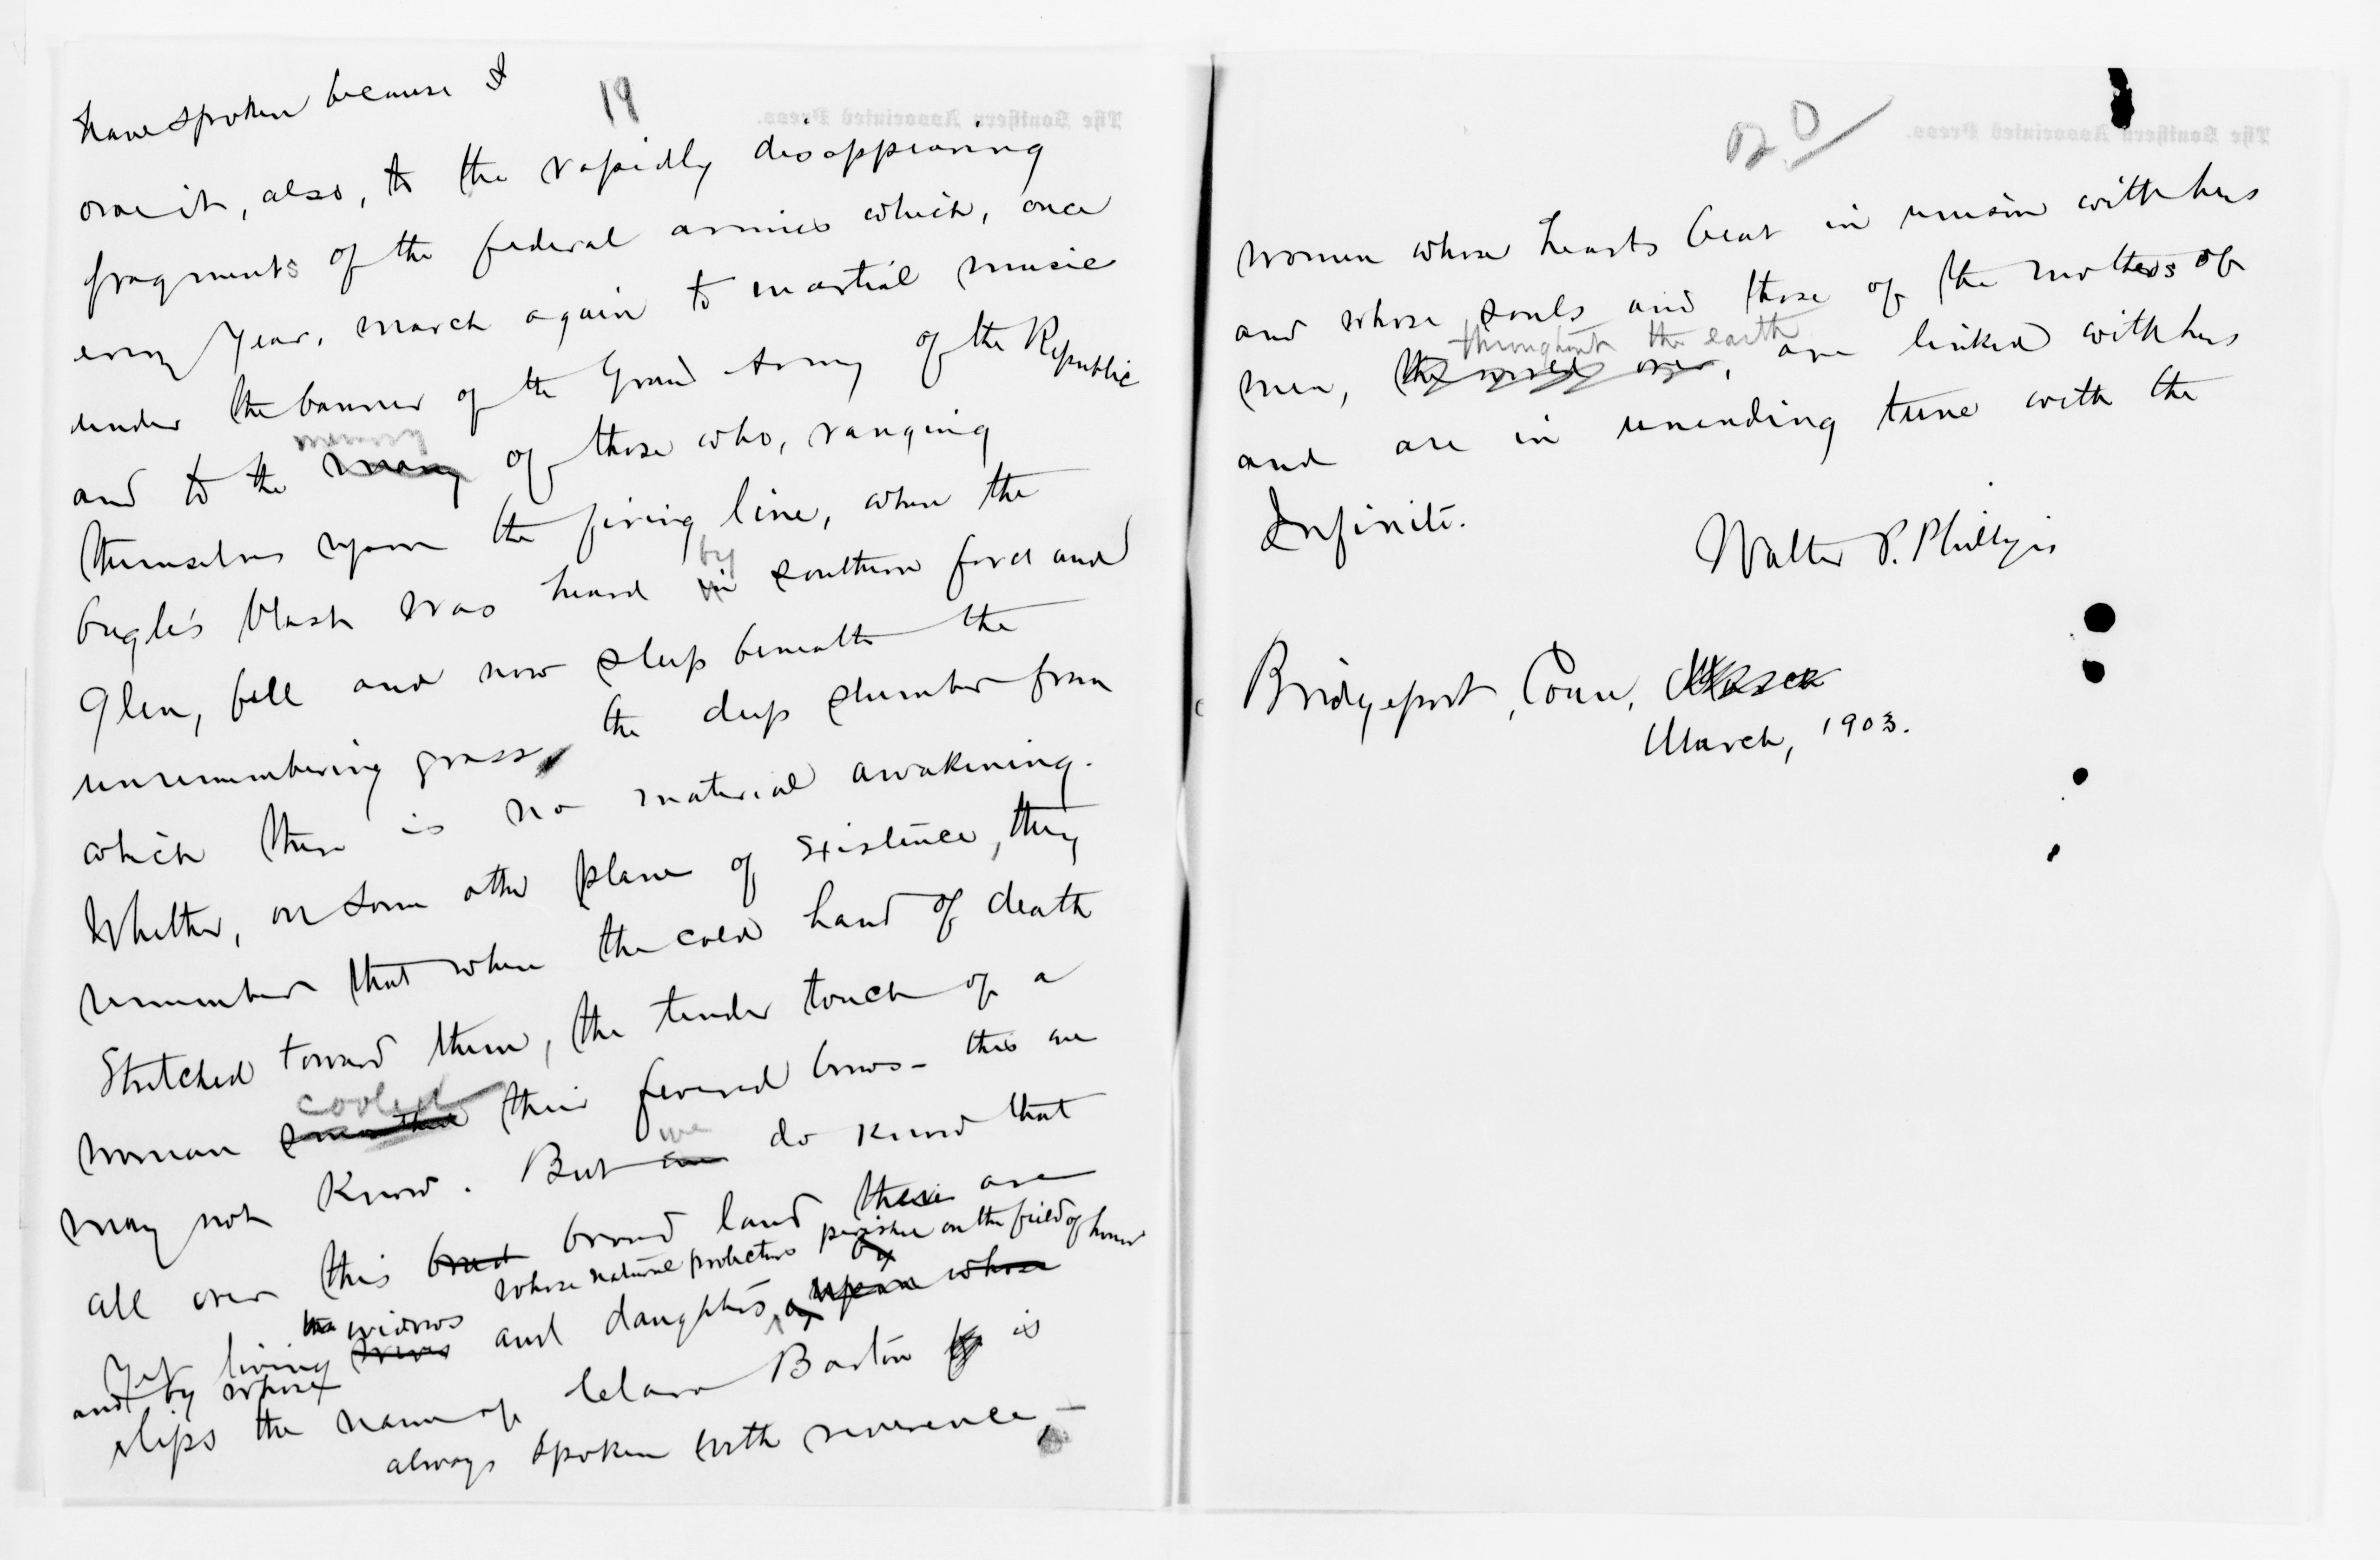 have spoken because I
19
The Southern Associated Press.
owe it, also, to the rapidly disappearing
fragments of the federal armies which, once
every year, march again to martial music
under the banner of the Grand Army of the Republic
and to the many of those who, ranging
themselves upon the firing line, when the
by
bugle's blast was heard in southern forest and
Glen, fell and now sleep beneath the
unremembering grass, the deep slumber from
which there is no material awakening.
Whether, on some other plane of existence, they
remember that when the cold hand of death
Stretched toward them, the tender touch of a
cooled
woman smoothed their fevered brows - this we
we
may not know. But do know that
all over this broad land there are
whose natural protectors perished on the field of honor
the widows
yet living wives and daughters, upon whose
and by whose
lips the name of Clara Barton is
always spoken with reverence, —
20
The Southern Associated Press.
women whose hearts beat in unison with hers
and whose souls and those of the mothers of
throughout the earth
men, the world over, are linked with hers
and are in unending tune with the
Infinite.
Walter P. Phillips
Bridgeport, Conn,
March, 1903.